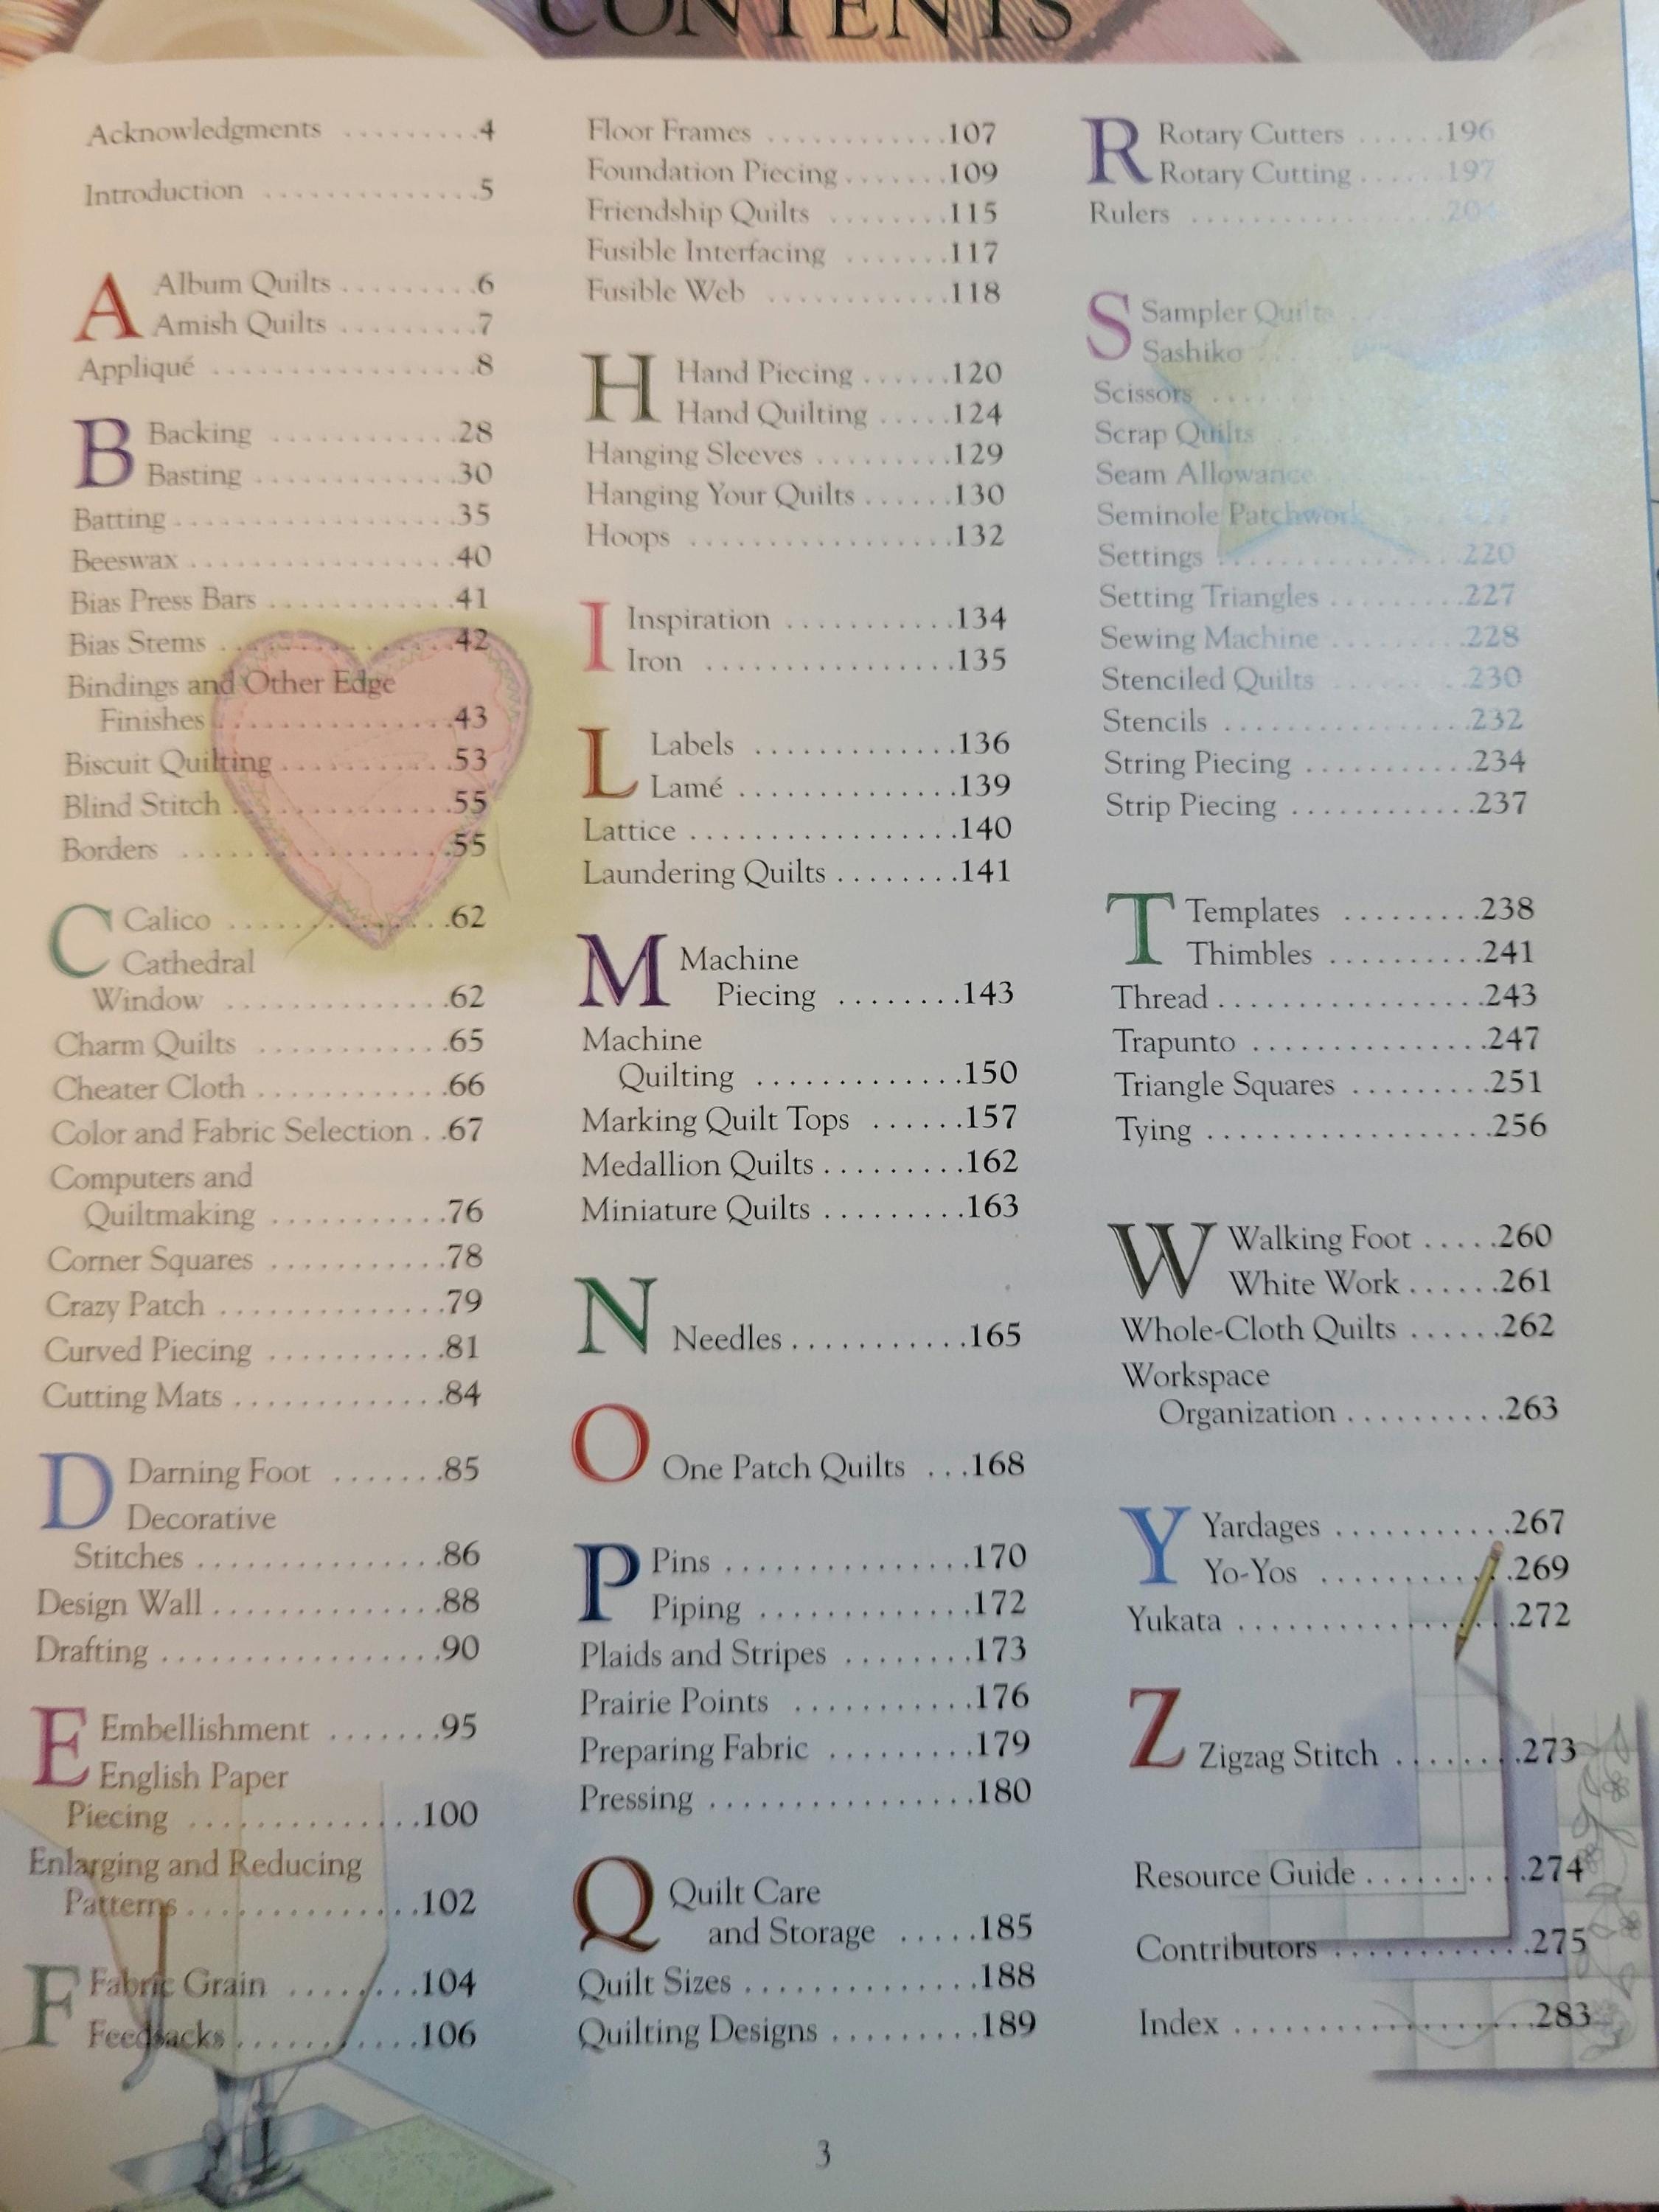 CONTENTS
Acknowledgments .........4
Introduction ..............5
A Album Quilts ..........6
Amish Quilts ..........7
Appliqué .................8
B Backing ............28
Basting .............30
Batting ..................35
Beeswax .................40
Bias Press Bars ............41
Bias Stems ................42
Bindings and Other Edge
Finishes ...............43
Biscuit Quilting ...........53
Blind Stitch ..............55
Borders .................55
C Calico ...............62
Cathedral
Window ..............62
Charm Quilts ............65
Cheater Cloth ............66
Color and Fabric Selection ..67
Computers and
Quiltmaking ...........76
Corner Squares ...........78
Crazy Patch ..............79
Curved Piecing ...........81
Cutting Mats .............84
D Darning Foot .......85
Decorative
Stitches ...............86
Design Wall ..............88
Drafting .................90
E Embellishment .......95
English Paper
Piecing .............100
Enlarging and Reducing
Patterns .............102
F Fabric Grain ........104
Feedsacks ...........106
Floor Frames ............107
Foundation Piecing .......109
Friendship Quilts ........115
Fusible Interfacing .......117
Fusible Web ............118
H Hand Piecing ......120
Hand Quilting .....124
Hanging Sleeves .........129
Hanging Your Quilts ......130
Hoops .................132
I Inspiration ...........134
Iron ................135
L Labels .............136
Lamé ..............139
Lattice .................140
Laundering Quilts ........141
M Machine
Piecing ........143
Machine
Quilting .............150
Marking Quilt Tops ......157
Medallion Quilts .........162
Miniature Quilts .........163
N Needles ...........165
O One Patch Quilts ...168
P Pins ...............170
Piping .............172
Plaids and Stripes ........173
Prairie Points ...........176
Preparing Fabric .........179
Pressing ................180
Q Quilt Care
and Storage .....185
Quilt Sizes ..............188
Quilting Designs .........189
R Rotary Cutters ......196
Rotary Cutting ......197
Rulers
S Sampler Quilts
Sashiko
Scissors
Scrap Quilts
Seam Allowance
Seminole Patchwork
Settings ................220
Setting Triangles .........227
Sewing Machine .........228
Stenciled Quilts .........230
Stencils ................232
String Piecing ...........234
Strip Piecing ............237
T Templates .........238
Thimbles ..........241
Thread .................243
Trapunto ...............247
Triangle Squares .........251
Tying ..................256
W Walking Foot .....260
White Work ......261
Whole-Cloth Quilts ......262
Workspace
Organization ..........263
Y Yardages ...........267
Yo-Yos ...........269
Yukata .................272
Z Zigzag Stitch ........273
Resource Guide ..........274
Contributors ............275
Index ..................283
3